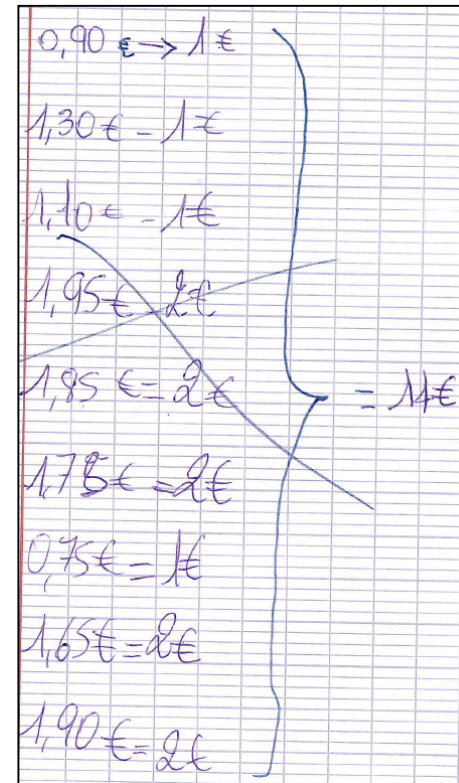 0,90 € → 1 €
1,30 € - 1 €
1,10 € - 1 €
1,95 € - 2 €
1,85 € = 2 € = 14 €
1,75 € = 2 €
0,75 € = 1 €
1,65 € = 2 €
1,90 € = 2 €